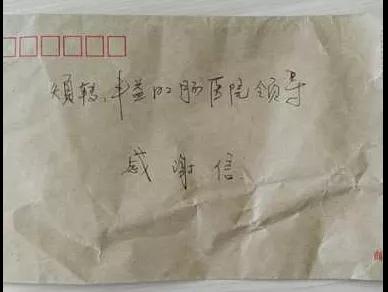 烦转、丰益肛肠医院领导
感谢信